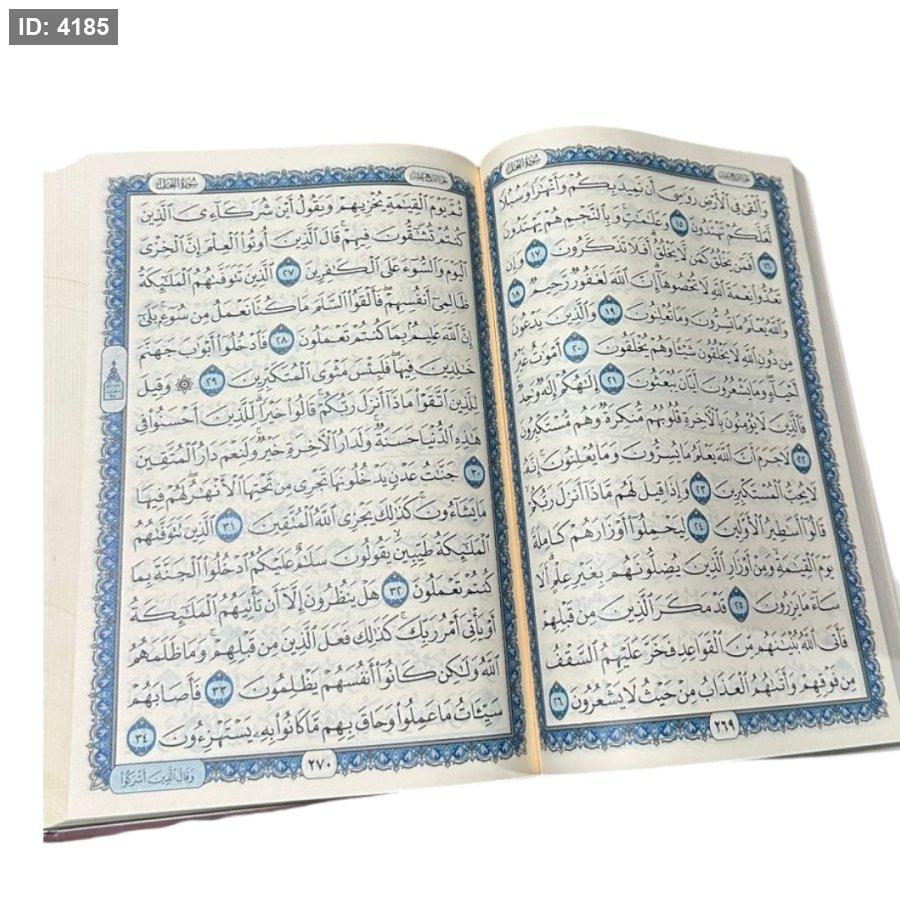 ID: 4185
سُورَةُ النَّحْلِ
الجزء الرابع عشر
وَأَلْقَىٰ فِي ٱلْأَرْضِ رَوَٰسِيَ أَن تَمِيدَ بِكُمْ وَأَنْهَٰرًا وَسُبُلًا
لَّعَلَّكُمْ تَهْتَدُونَ ١٥ وَعَلَٰمَٰتٍ وَبِٱلنَّجْمِ هُمْ يَهْتَدُونَ
١٦ أَفَمَن يَخْلُقُ كَمَن لَّا يَخْلُقُ أَفَلَا تَذَكَّرُونَ ١٧ وَإِن
تَعُدُّوا۟ نِعْمَةَ ٱللَّهِ لَا تُحْصُوهَآ إِنَّ ٱللَّهَ لَغَفُورٌ رَّحِيمٌ ١٨
وَٱللَّهُ يَعْلَمُ مَا تُسِرُّونَ وَمَا تُعْلِنُونَ ١٩ وَٱلَّذِينَ يَدْعُونَ
مِن دُونِ ٱللَّهِ لَا يَخْلُقُونَ شَيْـًٔا وَهُمْ يُخْلَقُونَ ٢٠ أَمْوَٰتٌ غَيْرُ
أَحْيَآءٍ وَمَا يَشْعُرُونَ أَيَّانَ يُبْعَثُونَ ٢١ إِلَٰهُكُمْ إِلَٰهٌ وَٰحِدٌ
فَٱلَّذِينَ لَا يُؤْمِنُونَ بِٱلْءَاخِرَةِ قُلُوبُهُم مُّنكِرَةٌ وَهُم مُّسْتَكْبِرُونَ
٢٢ لَا جَرَمَ أَنَّ ٱللَّهَ يَعْلَمُ مَا يُسِرُّونَ وَمَا يُعْلِنُونَ إِنَّهُۥ
لَا يُحِبُّ ٱلْمُسْتَكْبِرِينَ ٢٣ وَإِذَا قِيلَ لَهُم مَّاذَآ أَنزَلَ رَبُّكُمْ
قَالُوٓا۟ أَسَٰطِيرُ ٱلْأَوَّلِينَ ٢٤ لِيَحْمِلُوٓا۟ أَوْزَارَهُمْ كَامِلَةً
يَوْمَ ٱلْقِيَٰمَةِ وَمِنْ أَوْزَارِ ٱلَّذِينَ يُضِلُّونَهُم بِغَيْرِ عِلْمٍ أَلَا
سَآءَ مَا يَزِرُونَ ٢٥ قَدْ مَكَرَ ٱلَّذِينَ مِن قَبْلِهِمْ
فَأَتَى ٱللَّهُ بُنْيَٰنَهُم مِّنَ ٱلْقَوَاعِدِ فَخَرَّ عَلَيْهِمُ ٱلسَّقْفُ
مِن فَوْقِهِمْ وَأَتَىٰهُمُ ٱلْعَذَابُ مِنْ حَيْثُ لَا يَشْعُرُونَ ٢٦
٢٦٩
سُورَةُ النَّحْلِ
الجزء الرابع عشر
ثُمَّ يَوْمَ ٱلْقِيَٰمَةِ يُخْزِيهِمْ وَيَقُولُ أَيْنَ شُرَكَآءِىَ ٱلَّذِينَ
كُنتُمْ تُشَٰٓقُّونَ فِيهِمْ قَالَ ٱلَّذِينَ أُوتُوا۟ ٱلْعِلْمَ إِنَّ ٱلْخِزْىَ
ٱلْيَوْمَ وَٱلسُّوٓءَ عَلَى ٱلْكَٰفِرِينَ ٢٧ ٱلَّذِينَ تَتَوَفَّىٰهُمُ ٱلْمَلَٰٓئِكَةُ
ظَالِمِىٓ أَنفُسِهِمْ فَأَلْقَوُا۟ ٱلسَّلَمَ مَا كُنَّا نَعْمَلُ مِن سُوٓءٍ بَلَىٰٓ
إِنَّ ٱللَّهَ عَلِيمٌۢ بِمَا كُنتُمْ تَعْمَلُونَ ٢٨ فَٱدْخُلُوٓا۟ أَبْوَٰبَ جَهَنَّمَ
خَٰلِدِينَ فِيهَا فَلَبِئْسَ مَثْوَى ٱلْمُتَكَبِّرِينَ ٢٩ ۞ وَقِيلَ
لِلَّذِينَ ٱتَّقَوْا۟ مَاذَآ أَنزَلَ رَبُّكُمْ قَالُوا۟ خَيْرًا لِّلَّذِينَ أَحْسَنُوا۟ فِى
هَٰذِهِ ٱلدُّنْيَا حَسَنَةٌ وَلَدَارُ ٱلْءَاخِرَةِ خَيْرٌ وَلَنِعْمَ دَارُ ٱلْمُتَّقِينَ
٣٠ جَنَّٰتُ عَدْنٍ يَدْخُلُونَهَا تَجْرِى مِن تَحْتِهَا ٱلْأَنْهَٰرُ لَهُمْ فِيهَا
مَا يَشَآءُونَ كَذَٰلِكَ يَجْزِى ٱللَّهُ ٱلْمُتَّقِينَ ٣١ ٱلَّذِينَ تَتَوَفَّىٰهُمُ
ٱلْمَلَٰٓئِكَةُ طَيِّبِينَ يَقُولُونَ سَلَٰمٌ عَلَيْكُمُ ٱدْخُلُوا۟ ٱلْجَنَّةَ بِمَا
كُنتُمْ تَعْمَلُونَ ٣٢ هَلْ يَنظُرُونَ إِلَّآ أَن تَأْتِيَهُمُ ٱلْمَلَٰٓئِكَةُ
أَوْ يَأْتِىَ أَمْرُ رَبِّكَ كَذَٰلِكَ فَعَلَ ٱلَّذِينَ مِن قَبْلِهِمْ وَمَا ظَلَمَهُمُ
ٱللَّهُ وَلَٰكِن كَانُوٓا۟ أَنفُسَهُمْ يَظْلِمُونَ ٣٣ فَأَصَابَهُمْ
سَيِّـَٔاتُ مَا عَمِلُوا۟ وَحَاقَ بِهِم مَّا كَانُوا۟ بِهِۦ يَسْتَهْزِءُونَ ٣٤
٢٧٠
وَقَالَ الَّذِينَ أَشْرَكُوا